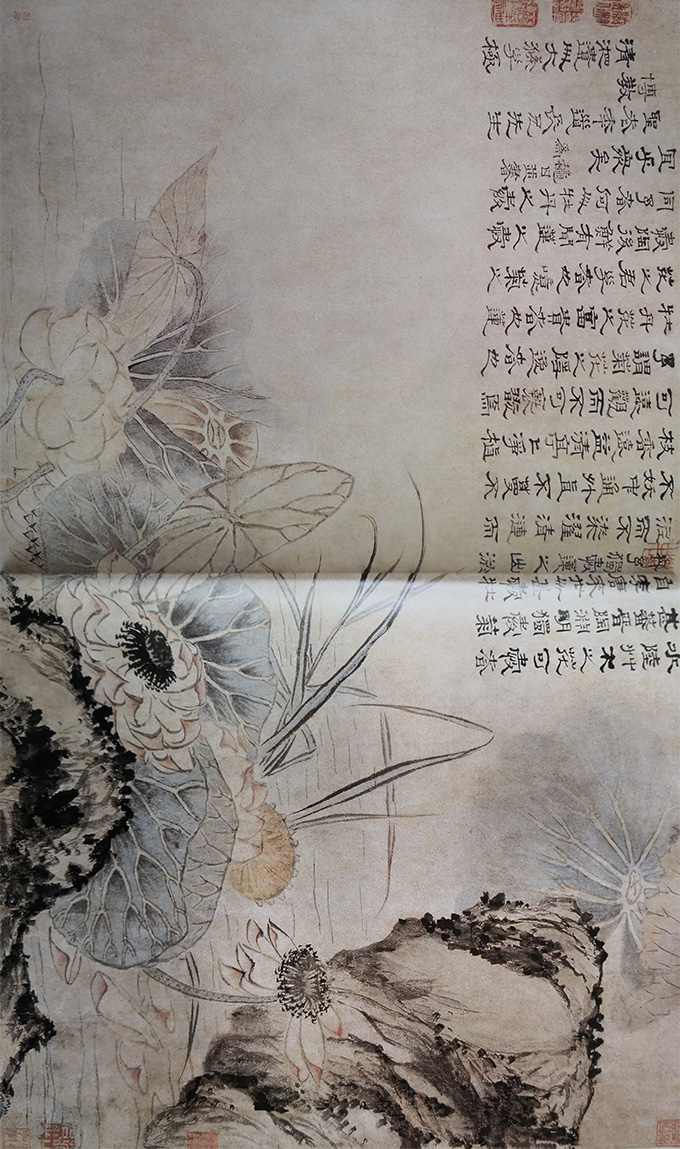 水陸艸木之花可愛者
甚蕃晉陶淵明獨愛菊
自李唐來世人盛愛牡
丹予獨愛蓮之出淤
泥而不染濯清漣而
不妖中通外直不蔓不
枝香遠益清亭亭淨植
可遠觀而不可褻翫焉
予謂菊花之隱逸者也
牡丹花之富貴者也蓮
花之君子者也噫菊之
愛陶後鮮有聞蓮之愛
同予者何人牡丹之愛
宜乎衆矣
聖老年道長兄先生
博教
清湘遺人大滌子極